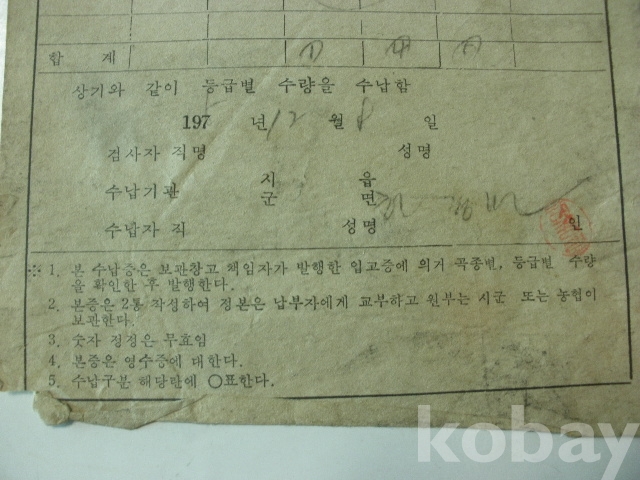 합 계
상기와 같이 등급별 수량을 수납함
197 년 12 월 8 일
검사자 직명 성명
수납기관 시 군 읍 면
수납자 직 성명 인
※ 1. 본 수납증은 보관창고 책임자가 발행한 입고증에 의거 곡종별, 등급별 수량
을 확인한 후 발행한다.
2. 본증은 2통 작성하여 정본은 납부자에게 교부하고 원부는 시군 또는 농협이
보관한다.
3. 숫자 정정은 무효임
4. 본증은 영수증에 대한다.
5. 수납구분 해당란에 ○표한다.
kobay